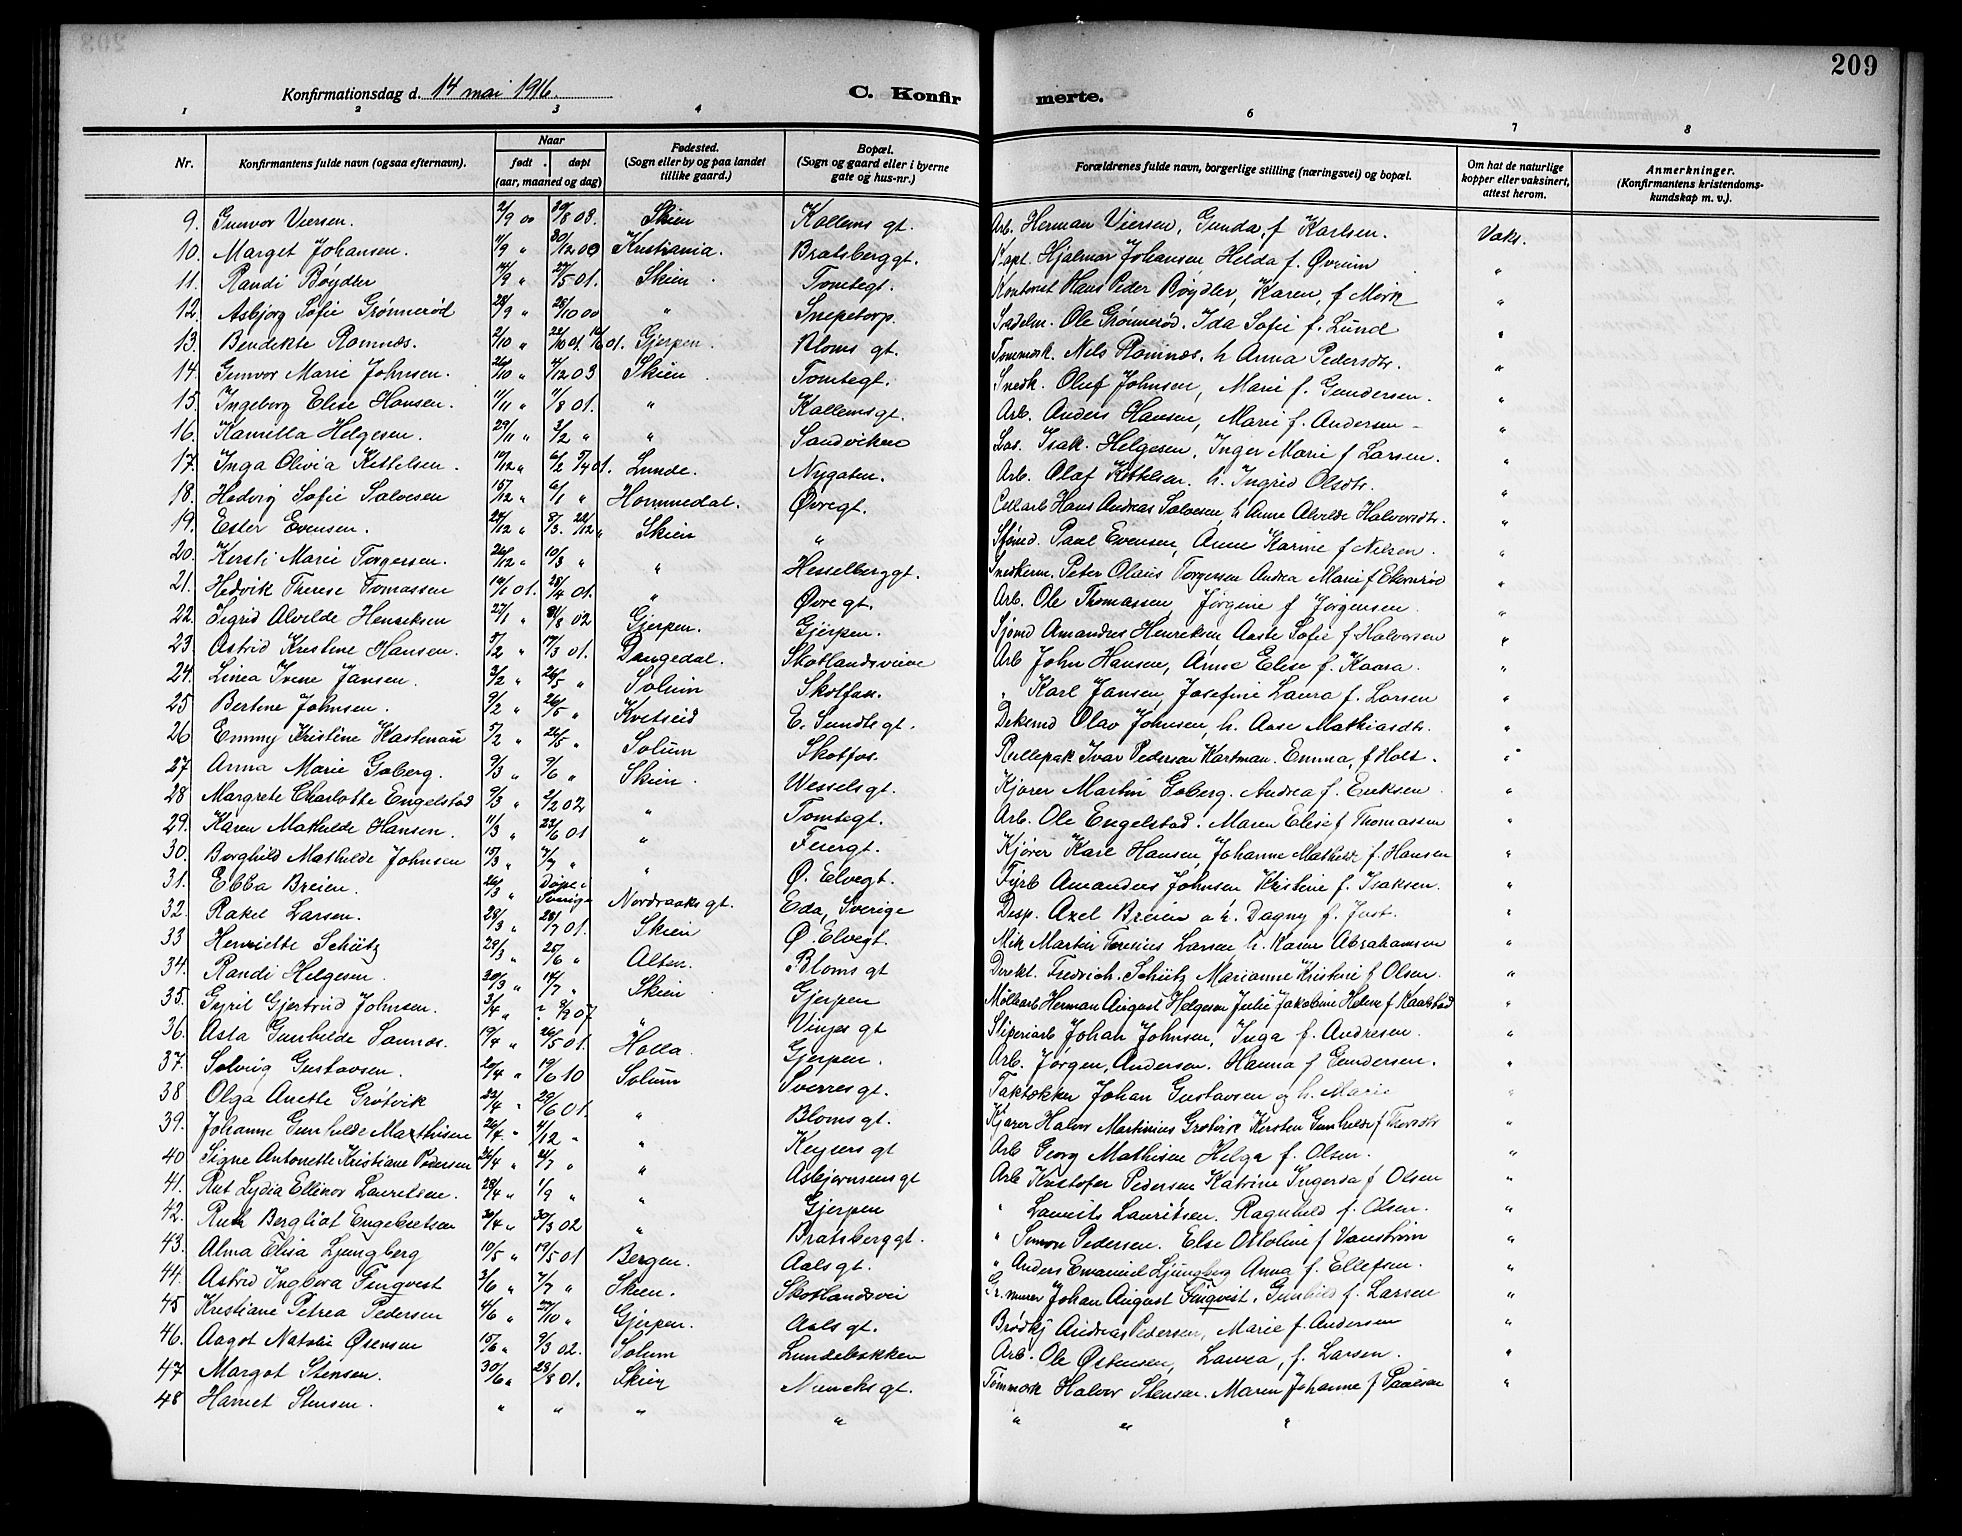 209
Konfirmationsdag d. 14 mai 1916.
C. Konfirmerte.
1 2 3 4 6 7 8
Nr. Konfirmantens fulde navn (ogsaa efternavn). Naar født døpt (aar, maaned og dag) Fødested. (Sogn eller by og paa landet tillike gaard.) Bopæl. (Sogn og gaard eller i byerne gate og hus-nr.) Forældrenes fulde navn, borgerlige stilling (næringsvei) og bopæl. Om hat de naturlige kopper eller vaksinert, attest herom. Anmerkninger. (Konfirmantens kristendomskundskap m. v.).
9. Gunvor Viersen. 2/9 00 30/8 08. Skien Kallems gt. Arb. Herman Viersen, Gunda, f Karlsen. Vaks.
10. Marget Johansen. 11/9 " 30/12 00 Kristiania. Bratsberggt. Kapt. Hjalmar Johansen Helda f. Øvrum "
11. Randi Bøydler 14/9 " 27/5 01. Skien Tomtegt. Kontorist Hans Peder Bøydler, Karen, f Mørk "
12. Asbjørg Sofie Grønnerød 28/9 " 28/10 00 " Snepetorp. Sadelm. Ole Grønnerød. Ida Sofie f. Lund "
13. Bendikte Romnæs. 2/10 " Gjerpen. Bloms gt. Tømmerk. Nils Romnæs. h Anna Pedersdtr. "
14. Gunvor Marie Johnsen. 26/10 " 4/12 03 Skien Tomtegt. Snedk. Oluf Johnsen, Marie f. Gundersen. "
15. Ingeborg Elise Hansen. 11/11 " 11/8 01. " Kallemsgt. Arb. Anders Hansen, Marie f. Andersen "
16. Kamilla Helgesen. 29/11 " 3/2 " " Sandviken Las. Isak. Helgesen, Inger Marie f Larsen. "
17. Inga Olivia Kittelsen. 10/12 " 6/2 5/4 01. Lunde. Nygaten. Arb. Olaf Kittelsen. h. Ingrid Olsdtr. "
18. Hedvig Sofie Salvesen 15/12 " 6/1 " Hommedal. Øvregt. Cellarb Hans Andreas Salvesen, h Anne Alvilde Halvorsdtr. "
19. Ester Evensen. 24/12 " 8/3. 22/12 " Skien " Sjømd. Paul Evensen, Anne Karine f Nilsen. "
20. Kersti Marie Torgersen. 26/12 " 10/3 " " Hesselberggt. Snedkerm. Peter Olaus Torgersen Andrea Marie f Ekornrød "
21. Hedvik Therese Tomassen 16/1 01. 28/4 01. " Øvregt. Arb. Ole Thomassen, Jørgine f Jørgensen. "
22. Sigrid Alvilde Henriksen 27/1 " 31/8 02 Gjerpen. Gjerpen. Sjømd Amandus Henriksen Aaste Sofie f Halvorsen "
23. Astrid Kristine Hansen. 5/2 " 17/3 01. Dangedal. Skotlandsveien Arb John Hansen, Anne Elise f. Kaasa. "
24. Linea Irene Jansen. 3/2 " 26/5 " Solum Skotfoss. " Karl Jansen, Josefine Laura f. Larsen "
25 Bertine Johnsen. 9/2 " 26/5 " Kvitseid E. Sundts gt. Dekmd Olav Johnsen, h. Aase Mathiasdtr. "
26 Emmy Kristine Kastenau 5/2 " 26/5 " Solum Skotfos. Rullepak Ivar Pedersen Kartman. Emma, f Holt. "
27 Anna Marie Goberg. 9/3 " 9/6 " Skien. Wesselsgt. Kjører Martin Goberg. Andrea f. Eriksen. "
28 Margrete Charlotte Engelstad 9/3 " 2/2 02 " Tomtegt. Arb. Ole Engelstad. Maren Elise f Thomassen "
29. Karen Mathilde Hansen. 11/3 " 23/6 01 " Feiergt. Kjører Karl Hansen, Johanne Mathilde f. Hansen "
30. Borghild Mathilde Johnsen 15/3 " 7/7 " " Ø. Elvegt. Fyrb Amandus Johnsen Kristine f. Isaksen. "
31. Ebba Breien. 26/3 " Døpt i Sverige Nordraaks gt. Eda, Sverige Desp. Axel Breien o h. Dagny f. Just. "
32. Rakel Larsen. 28/3 " 28/7 01. Skien Ø. Elvegt. Mek Martin Terenius Larsen, h. Karen Abrahamsen "
33 Henriette Schütz 29/3 " 25/6 " Alten. Bloms gt Direkt. Fredrich. Schütz Marianne Kristine f Olsen. "
34. Randi Helgesen. 30/3 " 14/7 " Skien Gjerpen Møllearb Herman August Helgesen Julie Jakobine Helene f Kaalstad "
35. Gyril Gjertrud Johnsen. 3/4 " ? 8/9 07 " Vinjes gt Sliperiarb Johan Johnsen, Inga f. Andresen. "
36. Asta Gunhilde Sannæs. 19/4 " 26/5 01. Holla. Gjerpen. Arb. Jørgen, Andersen. Hanna f Gundersen. "
37. Solveig Gustavsen. 20/4 " 19/6 10 Solum Sverresgt. Taktækker Johan Gustavsen og h. Marie "
38 Olga Anette Grøtvik 22/4 " 29/6 01. " Bloms gt. Kjører Halvor Martinius Grøtvik Kirsten Gunhilde f Thorsdtr "
39. Johanne Gunhilde Marthisen 26/4 " 4/12 " " Keysers gt Arb Georg Mathisen Helga f. Olsen. "
40 Signe Antonette Kristiane Pedersen 26/4 " 21/7 " " Asbjørnsensgt Arb Kristofer Pedersen Katrine Ingerda f Olsen "
41. Rut Lydia Ellinor Lauritsen. 28/4 " 1/9 " " Gjerpen " Laurits Lauritsen. Ragnhild f. Olsen. "
42. Ruth Bergliot Engebretsen 30/4 " 30/3 02 " Bratsberggt. " Simon Pedersen. Else Ottoline f Vanstrøm "
43. Alma Elisa Ljungberg 10/5 " 19/5 01 Bergen. Aals gt. " Anders Emanuel Ljungberg Anna f. Ellefsen. "
44. Astrid Ingbora Finqvest 3/6 " 7/7 " Skien. Skotlandsvei Gr. murer Johan August Finqvest. Gunhild f. Larsen "
45 Kristiane Petrea Pedersen 4/6 " 27/10 " Gjerpen. Aals gt. Brødkj Andreas Pedersen, Marie f. Andersen "
46. Aagot Natalie Østensen 15/6 " 9/3 02. Solum Lundebakken Arb. Ole Østensen, Laura, f. Larsen. "
47 Margot Stensen. 30/6 " 28/8 01. Skien Muncks gt. Tømmerk Halvor Stensen. Maren Johanne f Paulsen "
48 Harriet Stensen. " " " " " " "